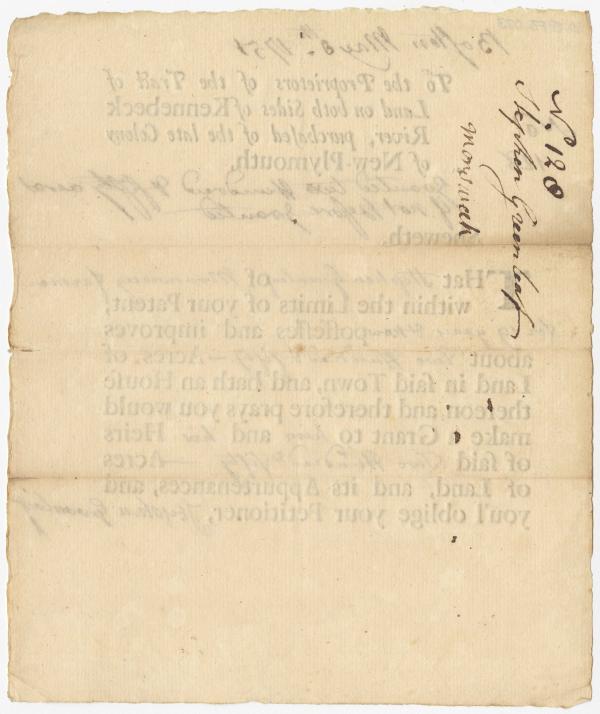 No. 128
Stephen Greenleaf
Boston May 8th 1751
To the Proprietors of the Tract of
Land on both Sides of Kennebeck
River, purchased of the late Colony
of New-Plymouth.
Granted two Hundred & fifty acres
if not before Granted
Sheweth.
THat Stephen Greenleaf of
within the Limits of your Patent,
years possesses and improves
about two Hundred & fifty Acres, of
Land in said Town, and hath an House
thereon, and therefore prays you would
make a Grant to him and his Heirs
of said two Hundred & fifty Acres
of Land, and its Appurtenances, and
you'l oblige your Petitioner, Stephen Greenleaf